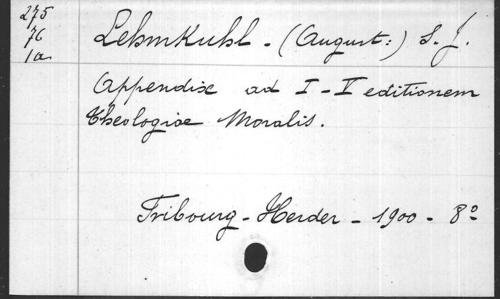 275
76
1a
Lehmkuhl - (August:) S. J.
Appendix ad I - V editionem
Theologiae Moralis.
Fribourg - Herder - 1900 - 8º